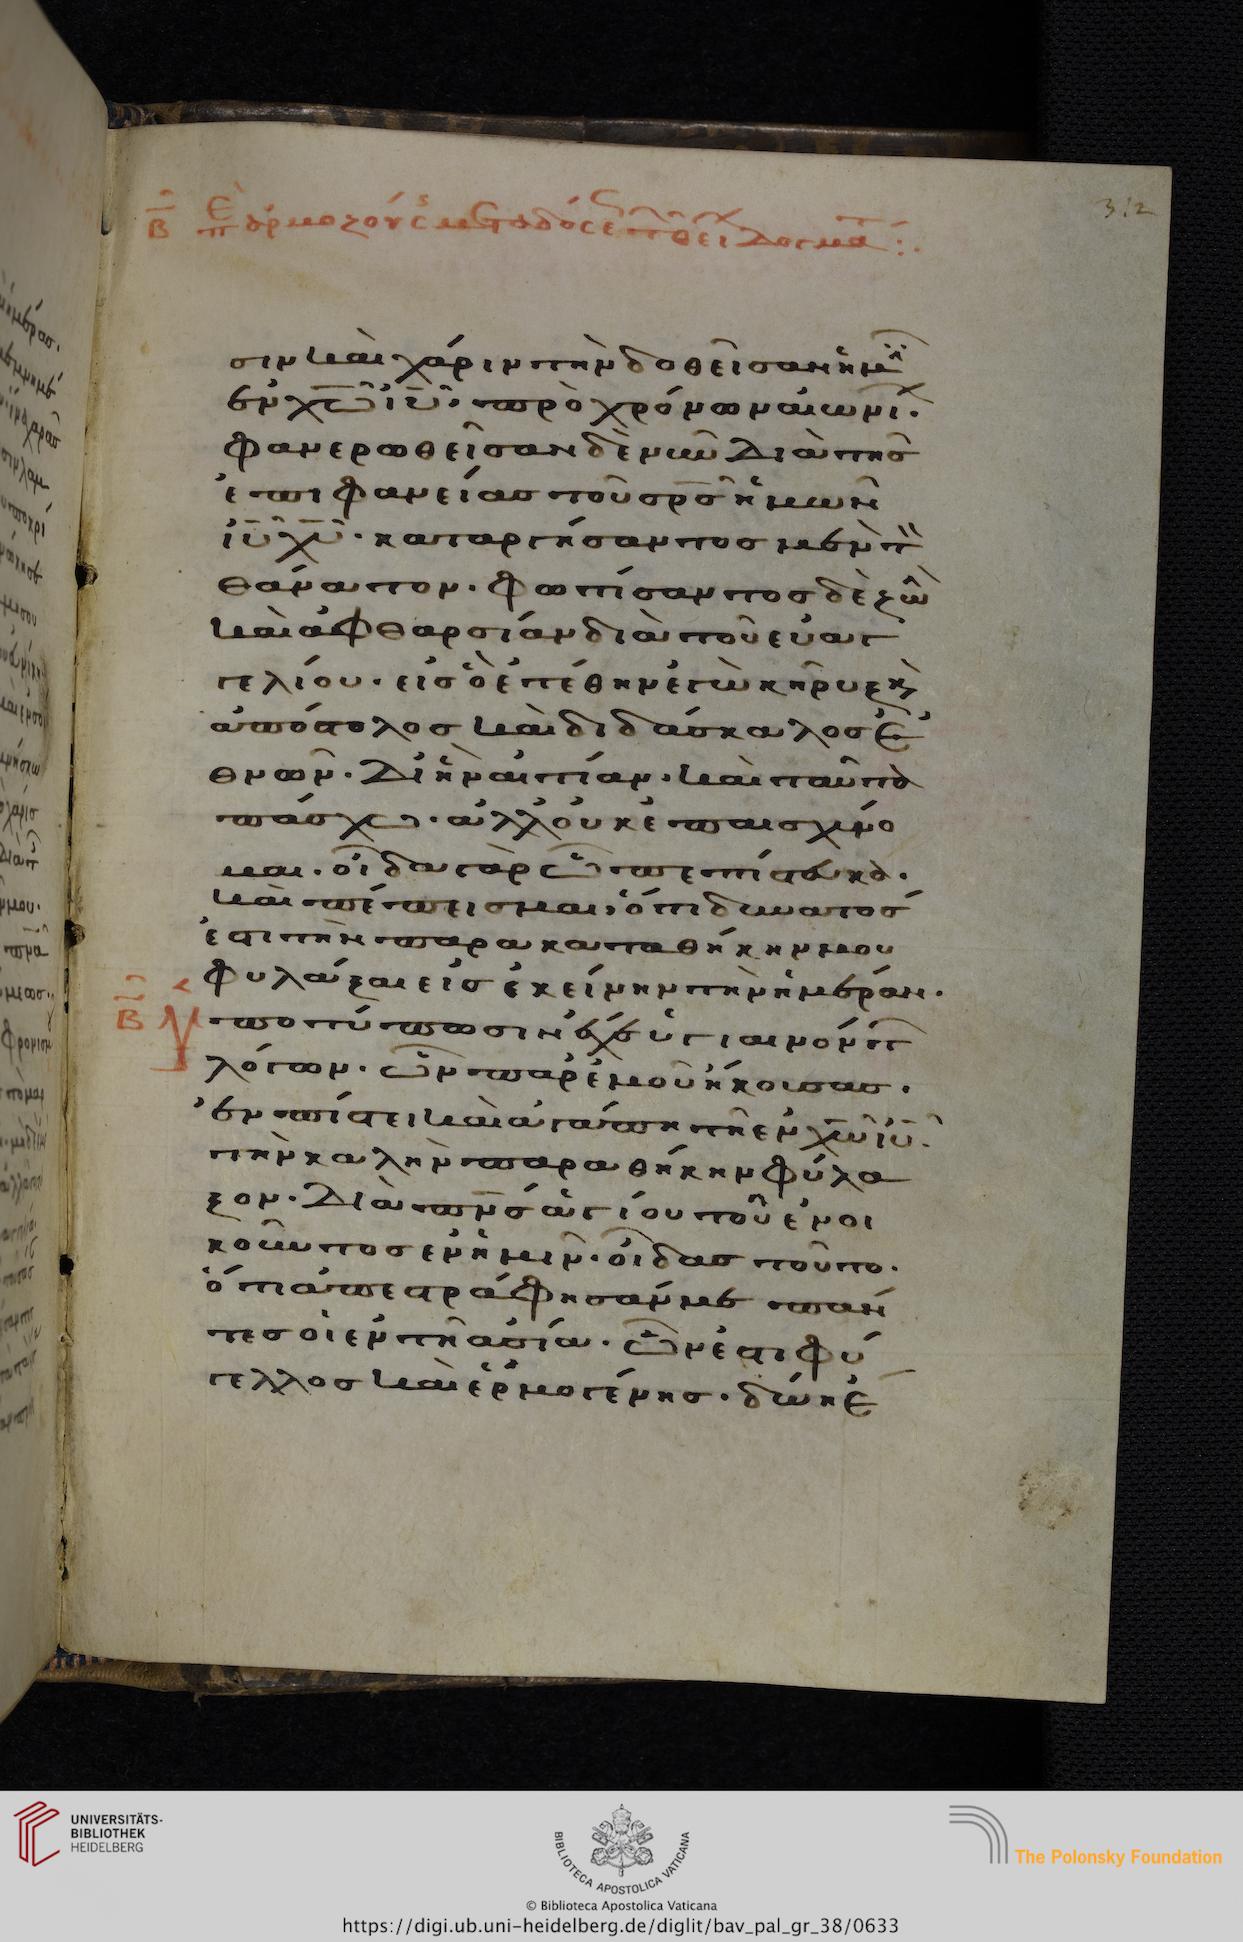 312
σιν και χάριν την δοθεῖσαν ἡμῖ
ἐν χω ιυ, πρὸ χρόνων αἰωνι.
φανερωθεῖσαν δὲ νῦν διὰ τῆς
ἐπιφανείας τοῦ σρς ἡμῶν
ιυ χυ. καταργήσαντος μὲν τ
θάνατον. φωτίσαντος δὲ ζω
καὶ ἀφθαρσίαν διὰ τοῦ εὐαγ
γελίου. εἰς ὃ ἐτέθην ἐγὼ κῆρυξ κ,
ἀπόστολος καὶ διδάσκαλος ἐ
θνῶν. δι ἣν αἰτίαν. καὶ ταῦτὰ
πάσχω. ἀλλ οὐκ ἐπαισχύνο
μαι. οἶδα γὰρ ὧ πεπίστευκὰ.
καὶ πέπεισμαι, ὅτι δυνατός
ἐστι τὴν παρακαταθήκην μου
φυλάξαι εἰς ἐκείνην τὴν ἡμέραν.
Β Ὑποτύπωσιν ἔχε ὑγιαινόντ
λόγων. ὧν παρ ἐμοῦ ἤκουσας.
ἐν πίστει καὶ ἀγάπη τῆ ἐν χω ιυ.
τὴν καλὴν παραθήκην φύλα
ξον. διὰ πνς ἁγίου τοῦ ἐνοι
κοῦντος ἐν ἡμῖν. οἶδας τοῦτο.
ὅτι ἀπεστράφησάν με παν
τες οἱ ἐν τῆ ἀσία. ὧν ἐστι φύ
γελλος καὶ ἑρμογένης. δώη ἔ
UNIVERSITÄTS-
BIBLIOTHEK
HEIDELBERG
BIBLIOTECA APOSTOLICA VATICANA
The Polonsky Foundation
© Biblioteca Apostolica Vaticana
https://digi.ub.uni-heidelberg.de/diglit/bav_pal_gr_38/0633